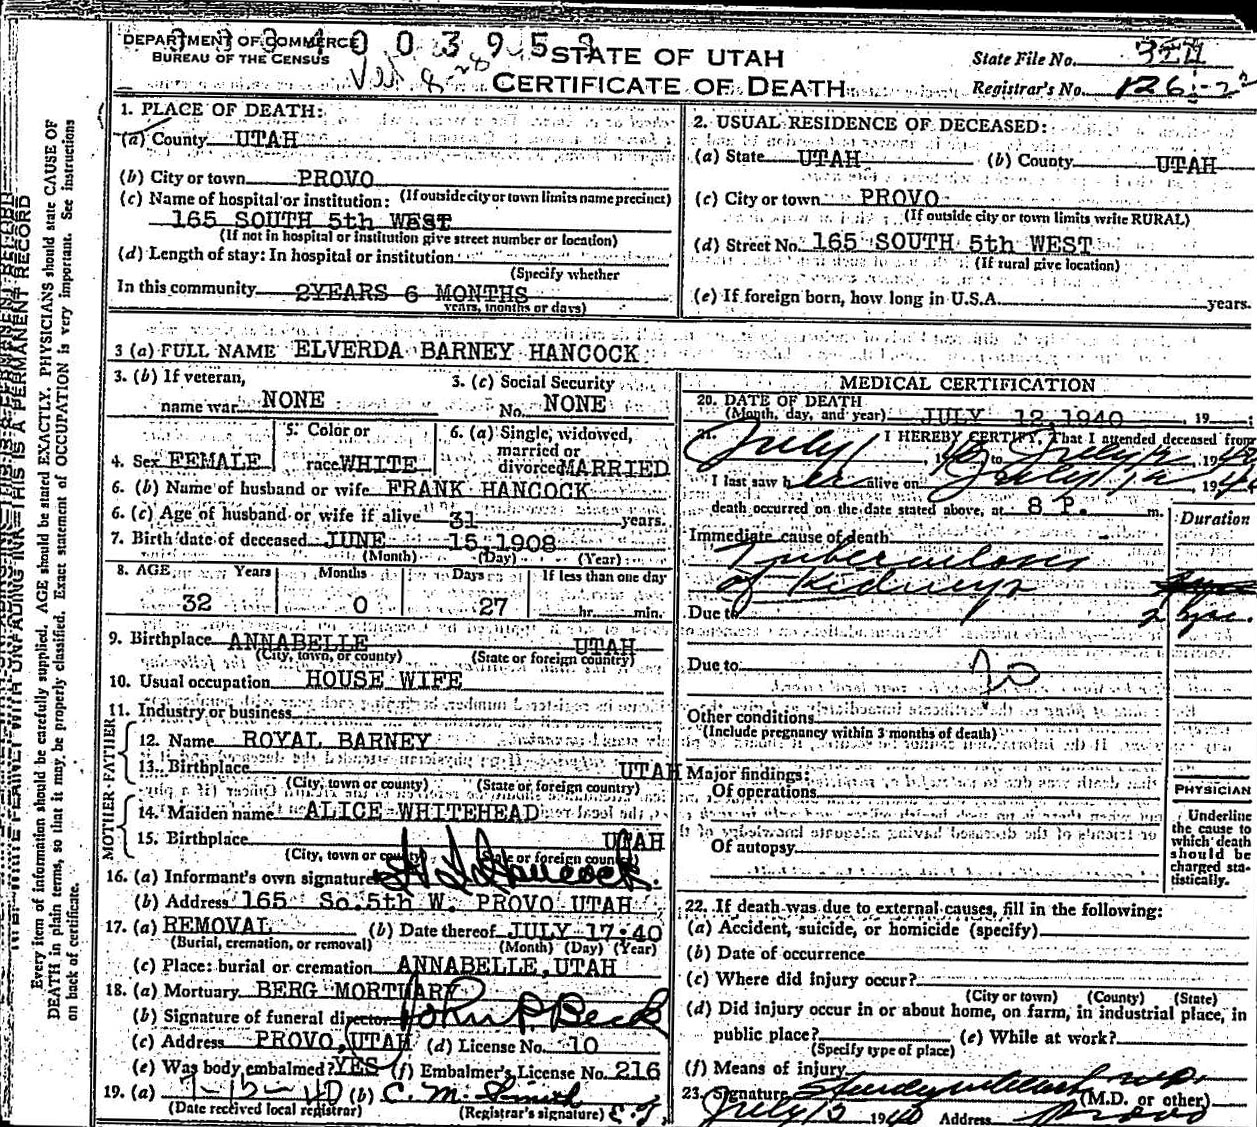 DEPARTMENT OF COMMERCE
BUREAU OF THE CENSUS
003959
8-28
STATE OF UTAH
CERTIFICATE OF DEATH
State File No.
Registrar's No. 126
1. PLACE OF DEATH:
(a) County UTAH
(b) City or town PROVO
(If outside city or town limits name precinct)
(c) Name of hospital or institution:
165 SOUTH 5th WEST
(If not in hospital or institution give street number or location)
(d) Length of stay: In hospital or institution
(Specify whether
In this community 2YEARS 6 MONTHS
years, months or days)
2. USUAL RESIDENCE OF DECEASED:
(a) State UTAH (b) County UTAH
(c) City or town PROVO
(If outside city or town limits write RURAL)
(d) Street No. 165 SOUTH 5th WEST
(If rural give location)
(e) If foreign born, how long in U.S.A. years.
3 (a) FULL NAME ELVERDA BARNEY HANCOCK
3. (b) If veteran,
name war NONE
3. (c) Social Security
No. NONE
4. Sex FEMALE
5. Color or
race WHITE
6. (a) Single, widowed,
married or
divorced MARRIED
6. (b) Name of husband or wife FRANK HANCOCK
6. (c) Age of husband or wife if alive 31 years.
7. Birth date of deceased JUNE 15 1908
(Month) (Day) (Year)
8. AGE Years Months Days If less than one day
32 0 27 hr. min.
9. Birthplace ANNABELLE UTAH
(City, town, or county) (State or foreign country)
10. Usual occupation HOUSE WIFE
11. Industry or business
FATHER
12. Name ROYAL BARNEY
13. Birthplace UTAH
(City, town or county) (State or foreign country)
MOTHER
14. Maiden name ALICE WHITEHEAD
15. Birthplace UTAH
(City, town or county) (State or foreign country)
16. (a) Informant's own signature Hancock.
(b) Address 165 So. 5th W. PROVO UTAH
17. (a) REMOVAL (b) Date thereof JULY 17-40
(Burial, cremation, or removal) (Month) (Day) (Year)
(c) Place: burial or cremation ANNABELLE, UTAH
18. (a) Mortuary BERG MORTUARY
(b) Signature of funeral director John P. Beck
(c) Address PROVO, UTAH (d) License No. 10
(e) Was body embalmed? YES (f) Embalmer's License No. 216
19. (a) 7-15-40 (b) C. M. Smith
(Date received local registrar) (Registrar's signature)
MEDICAL CERTIFICATION
20. DATE OF DEATH
(Month, day, and year) JULY 12, 1940, 19
21. I HEREBY CERTIFY, That I attended deceased from
July 1, 1940 to July 12, 1940
I last saw her alive on July 12, 1940
death occurred on the date stated above, at 8 P. m.
Duration
Immediate cause of death
Tuberculosis
of Kidneys
Due to
2 yrs.
Due to
20
Other conditions
(Include pregnancy within 3 months of death)
Major findings:
Of operations
Of autopsy
PHYSICIAN
Underline
the cause to
which death
should be
charged sta-
tistically.
22. If death was due to external causes, fill in the following:
(a) Accident, suicide, or homicide (specify)
(b) Date of occurrence
(c) Where did injury occur?
(City or town) (County) (State)
(d) Did injury occur in or about home, on farm, in industrial place, in
public place? (e) While at work?
(Specify type of place)
(f) Means of injury
23. Signature
(M.D. or other)
July 13 1940 Address Provo
THIS IS A PERMANENT RECORD
Every item of information should be carefully supplied. AGE should be stated EXACTLY. PHYSICIANS should state CAUSE OF
DEATH in plain terms, so that it may be properly classified. Exact statement of OCCUPATION is very important. See instructions
on back of certificate.